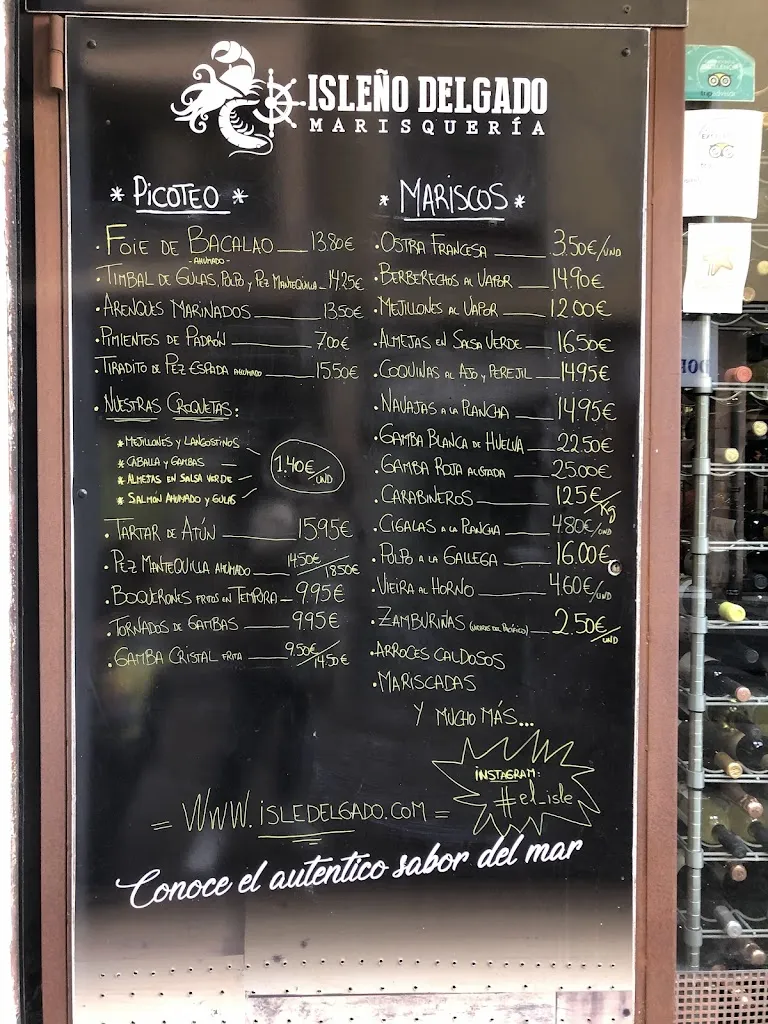 ISLEÑO DELGADO
MARISQUERÍA
* PICOTEO *
· FOIE DE BACALAO 13.80€
- AHUMADO -
· TIMBAL DE GULAS, PULPO Y PEZ MANTEQUILLA 14.25€
· ARENQUES MARINADOS 13.50€
· PIMIENTOS DE PADRÓN 7.00€
· TIRADITO DE PEZ ESPADA AHUMADO 15.50€
· NUESTRAS CROQUETAS:
* MEJILLONES Y LANGOSTINOS
* CABALLA Y GAMBAS
* ALMEJAS EN SALSA VERDE
* SALMÓN AHUMADO Y GULAS
1.40€/UND
· TARTAR DE ATÚN 15.95€
· PEZ MANTEQUILLA AHUMADO 14.50€/18.50€
· BOQUERONES FRITOS EN TEMPURA 9.95€
· TORNADOS DE GAMBAS 9.95€
· GAMBA CRISTAL FRITA 9.50€/14.50€
* MARISCOS *
· OSTRA FRANCESA 3.50€/UND
· BERBERECHOS AL VAPOR 14.90€
· MEJILLONES AL VAPOR 12.00€
· ALMEJAS EN SALSA VERDE 16.50€
· COQUINAS AL AJO Y PEREJIL 14.95€
· NAVAJAS A LA PLANCHA 14.95€
· GAMBA BLANCA DE HUELVA 22.50€
· GAMBA ROJA ALISTADA 25.00€
· CARABINEROS 125€/Kg
· CIGALAS A LA PLANCHA 4.80€/UND
· PULPO A LA GALLEGA 16.00€
· VIEIRA AL HORNO 4.60€/UND
· ZAMBURIÑAS (VIEIRAS DEL PACÍFICO) 2.50€/UND
· ARROCES CALDOSOS
· MARISCADAS
Y MUCHO MÁS...
INSTAGRAM:
#el_isle
= WWW.ISLEDELGADO.COM =
Conoce el autentico sabor del mar